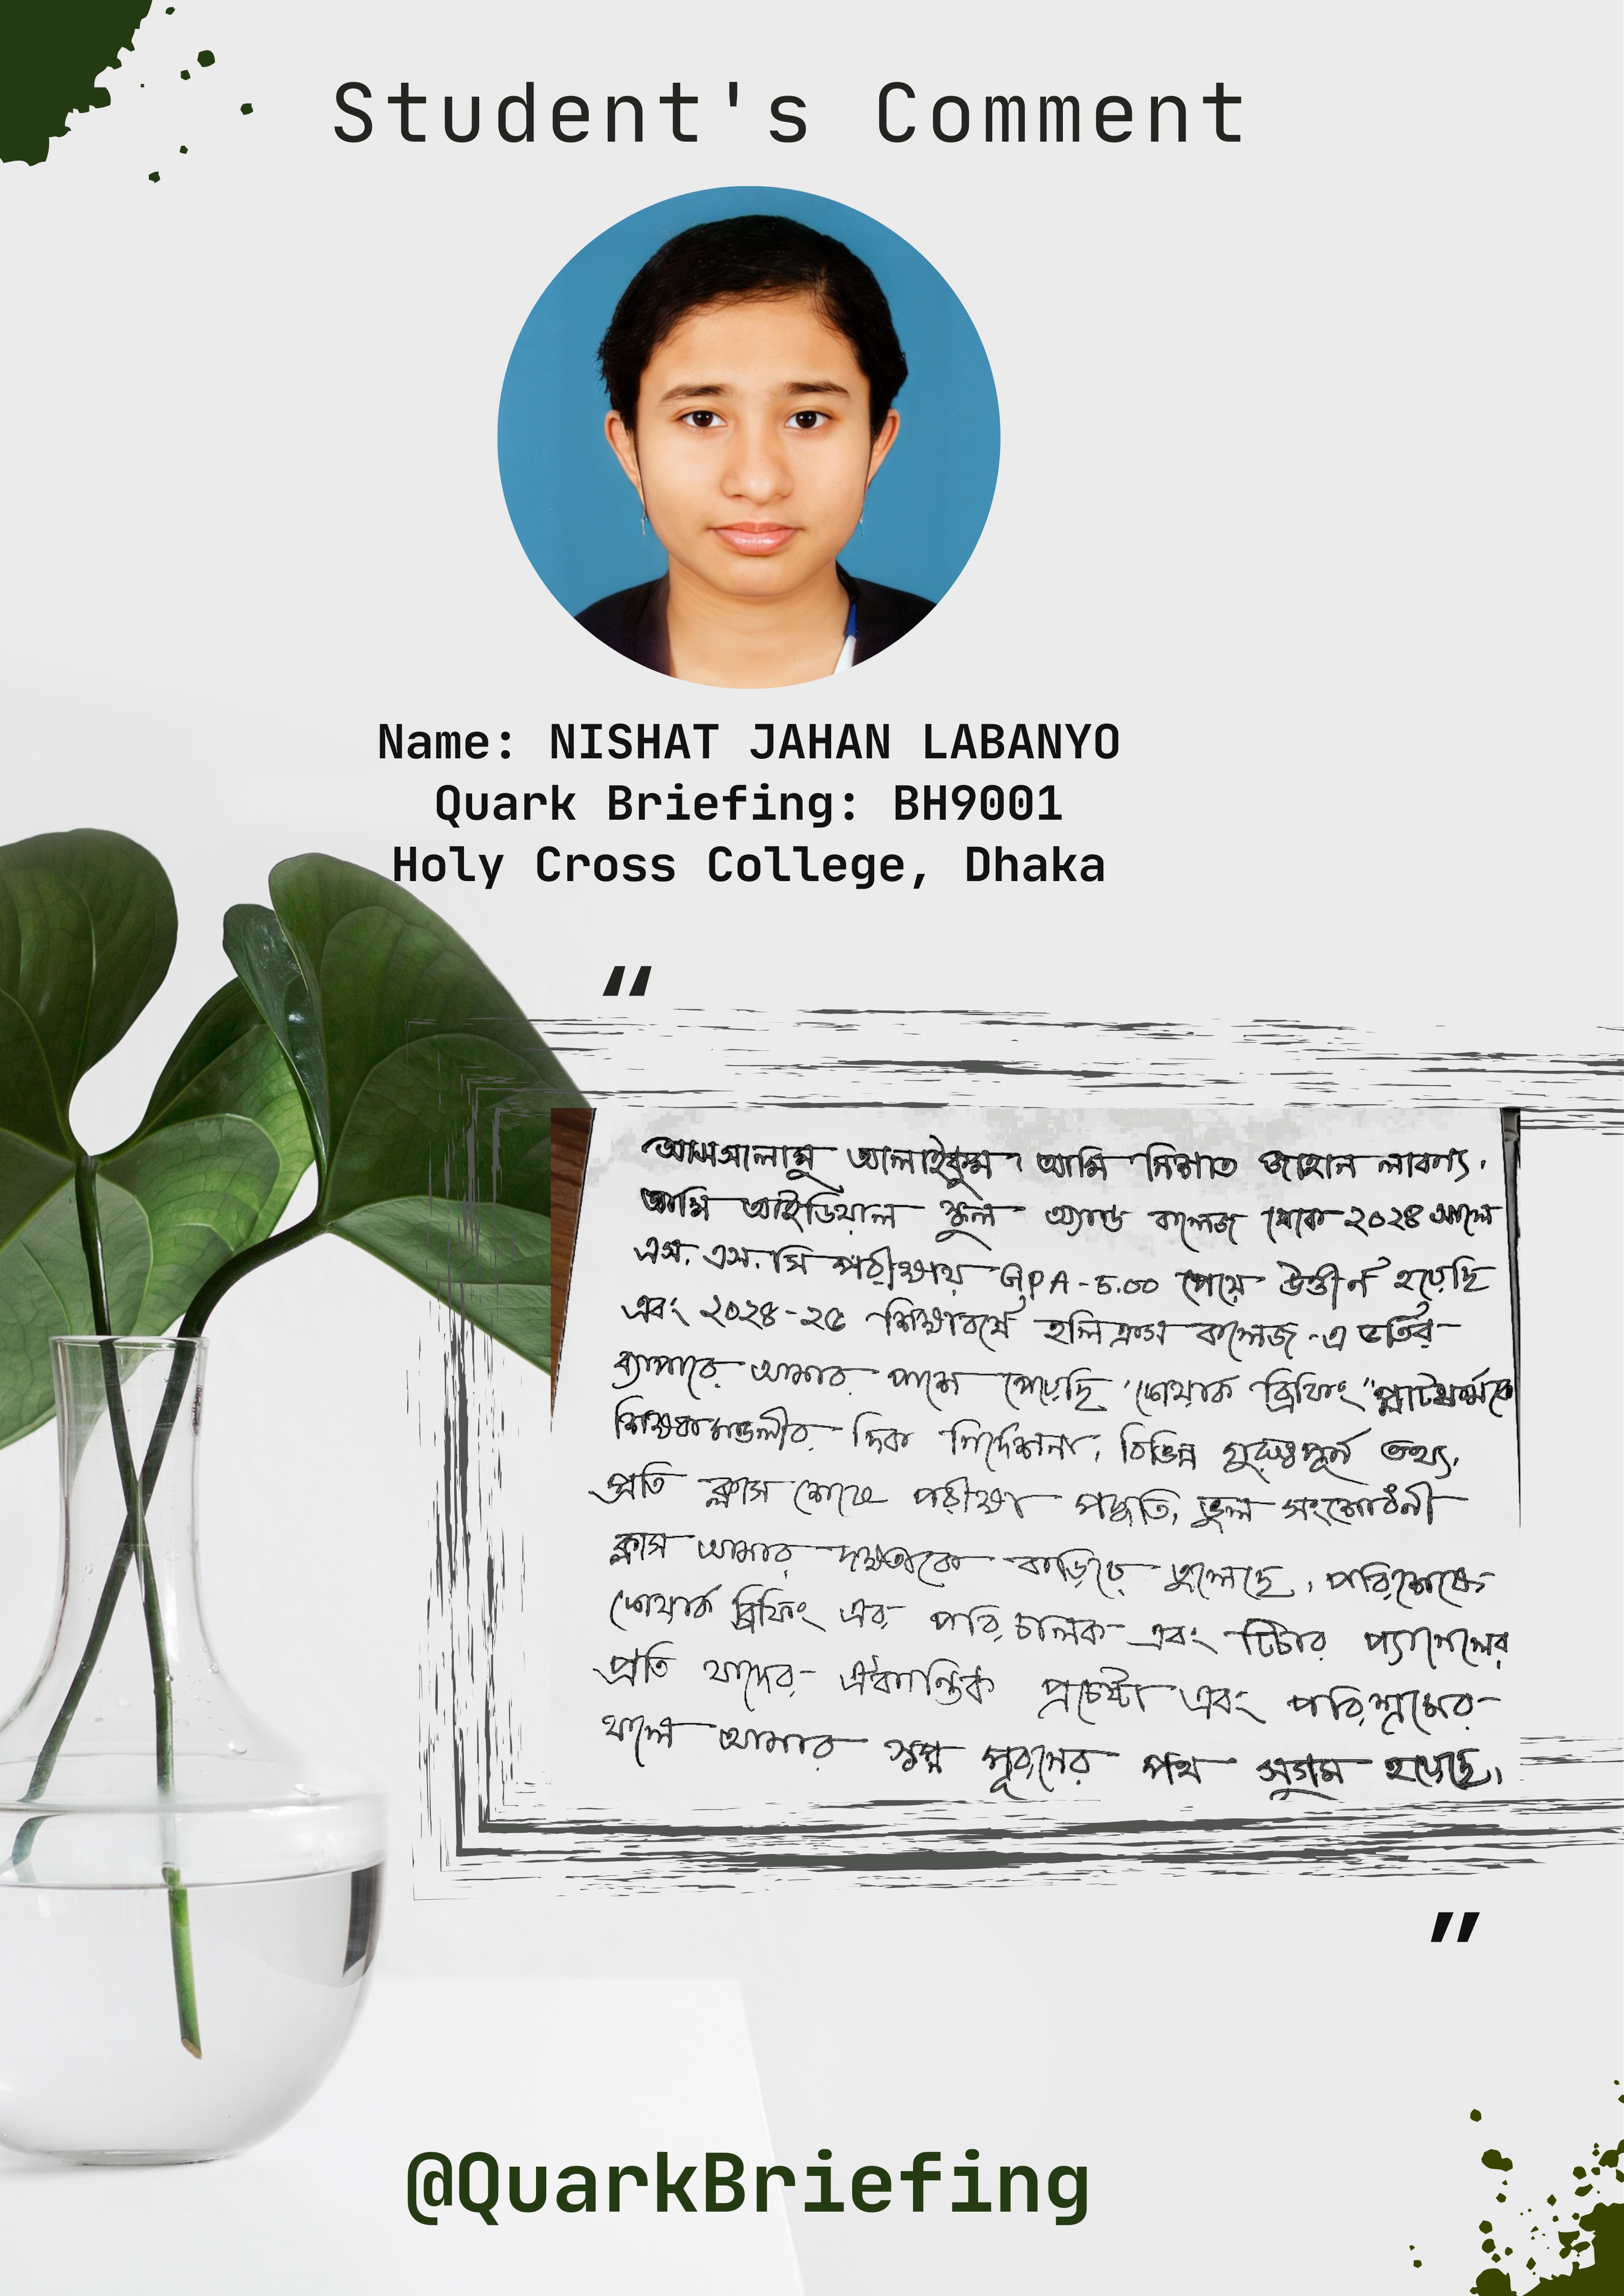 Student's Comment
Name: NISHAT JAHAN LABANYO
Quark Briefing: BH9001
Holy Cross College, Dhaka
“
আসসালামু আলাইকুম। আমি নিশাত জাহান লাবণ্য।
আমি আইডিয়াল স্কুল অ্যান্ড কলেজ থেকে ২০২৪ সালে
এস. এস. সি পরীক্ষায় GPA-5.00 পেয়ে উত্তীর্ন হয়েছি
এবং ২০২৪-২৫ শিক্ষাবর্ষে হলিক্রস কলেজ-এ ভর্তির
ব্যাপারে আমার পাশে পেয়েছি 'কোয়ার্ক ব্রিফিং' প্লাটফর্মকে
শিক্ষকমন্ডলীর দিক নির্দেশনা, বিভিন্ন গুরুত্বপূর্ন তথ্য,
প্রতি ক্লাস শেষে পরীক্ষা পদ্ধতি, ভুল সংশোধনী
ক্লাস আমার দক্ষতাকে বাড়িয়ে তুলেছে। পরিশেষে
কোয়ার্ক ব্রিফিং এর পরিচালক এবং টিচার প্যানেলের
প্রতি যাদের ঐকান্তিক প্রচেষ্টা এবং পরিশ্রমের
ফলে আমার স্বপ্ন পূরনের পথ সুগম হয়েছে।
”
@QuarkBriefing